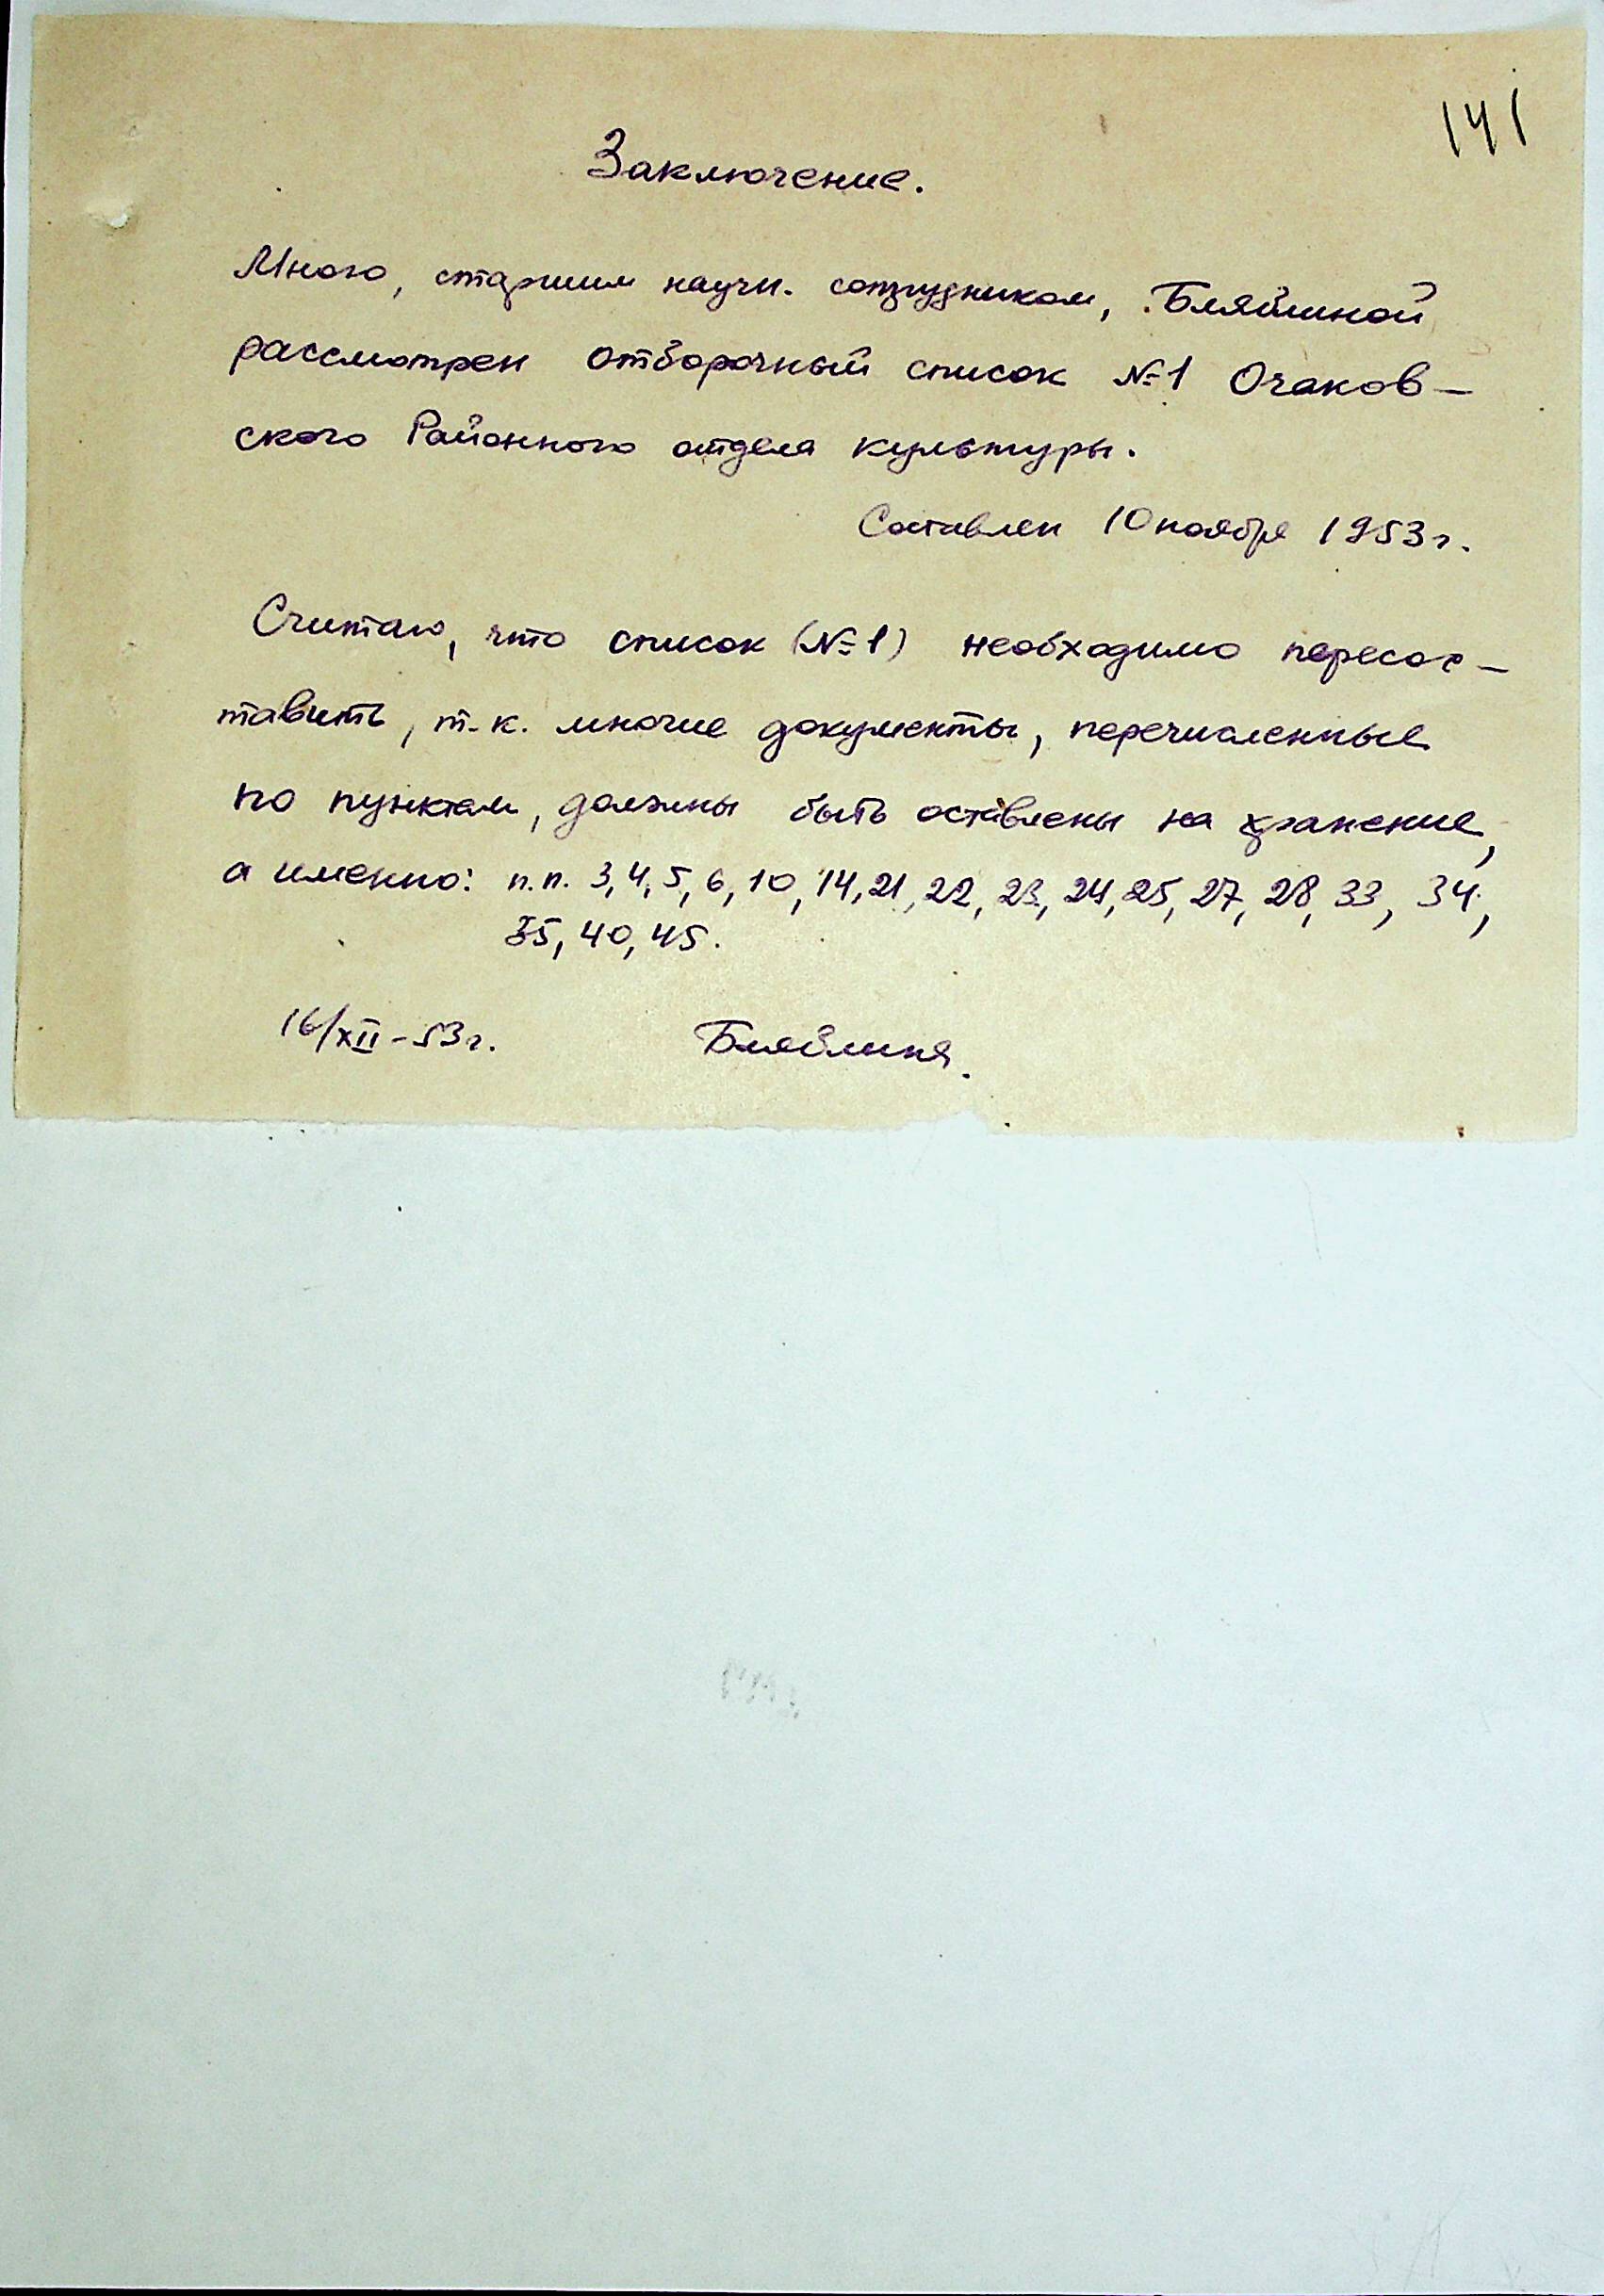 141
Заключение.
Мною, старшим научн. сотрудником, Бляйшной
рассмотрен отборочный список №1 Очаков-
ского Районного отдела культуры.
Составлен 10 ноября 1953 г.
Считаю, что список (№1) необходимо пересос-
тавить, т.к. многие документы, перечисленные
по пунктам, должны быть оставлены на хранение,
а именно: п.п. 3, 4, 5, 6, 10, 14, 21, 22, 23, 24, 25, 27, 28, 33, 34,
35, 40, 45.
16/XII-53 г.